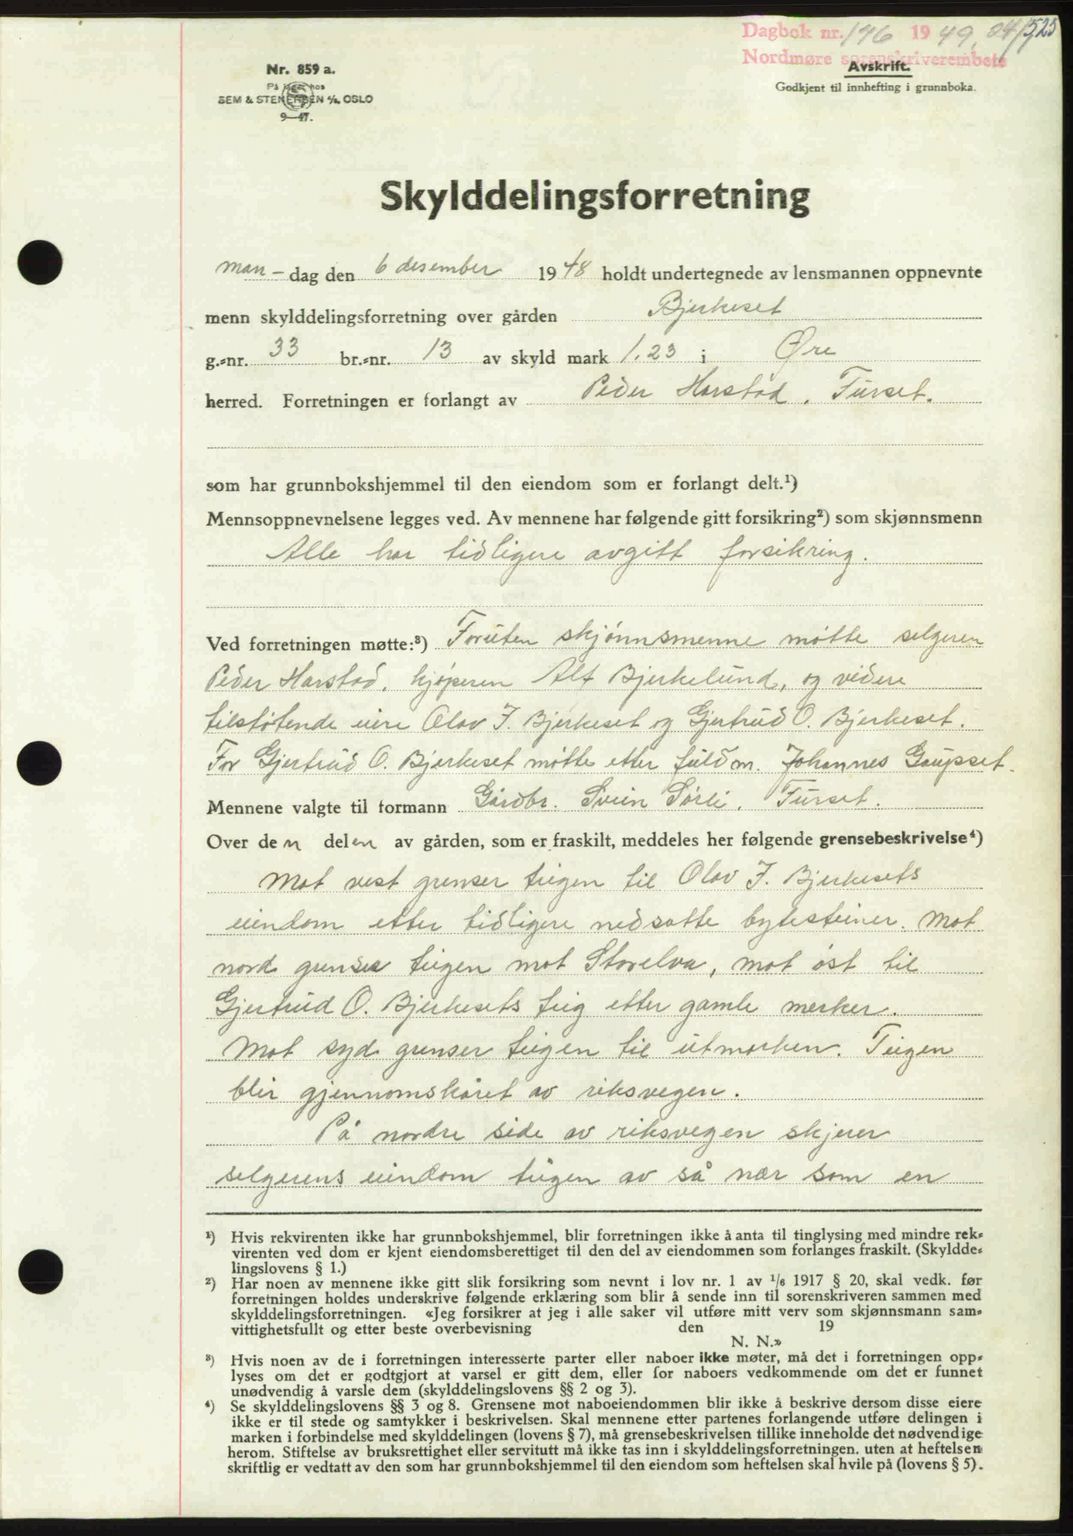 Dagbok nr. 176 1949, 525
Nordmøre sorenskriverembete
Avskrift.
Godkjent til innhefting i grunnboka.
Nr. 859 a.
På lager hos
SEM & STENERSEN A/S, OSLO
9—47.
Skylddelingsforretning
man- dag den 6 desember 1948 holdt undertegnede av lensmannen oppnevnte
menn skylddelingsforretning over gården Bjerkeset
g.-nr. 33 br.-nr. 13 av skyld mark 1.23 i Øre
herred. Forretningen er forlangt av Peder Harstad, Furset.
som har grunnbokshjemmel til den eiendom som er forlangt delt.¹)
Mennsoppnevnelsene legges ved. Av mennene har følgende gitt forsikring²) som skjønnsmenn
Alle har tidligere avgitt forsikring.
Ved forretningen møtte:³) Foruten skjønnsmenne møtte selgeren
Peder Harstad, kjøperen Alf Bjerkelund, og videre
tilstøtende eiere Olav J. Bjerkeset og Gjertrud O. Bjerkeset.
For Gjertrud O. Bjerkeset møtte etter fuldm. Johannes Gaupset.
Mennene valgte til formann Gårdbr. Svein Sørli, Furset.
Over den delen av gården, som er fraskilt, meddeles her følgende grensebeskrivelse⁴)
Mot vest grenser teigen til Olav J. Bjerkesets
eiendom etter tidligere nedsatte bytesteiner. Mot
nord grenser teigen mot Storelva, mot øst til
Gjertrud O. Bjerkesets teig etter gamle merker.
Mot syd grenser teigen til utmarken. Teigen
blir gjennomskåret av riksvegen.
På nordre side av riksvegen skjerer
selgerens eiendom teigen av så nær som en
¹) Hvis rekvirenten ikke har grunnbokshjemmel, blir forretningen ikke å anta til tinglysing med mindre rek-
virenten ved dom er kjent eiendomsberettiget til den del av eiendommen som forlanges fraskilt. (Skyldde-
lingslovens § 1.)
²) Har noen av mennene ikke gitt slik forsikring som nevnt i lov nr. 1 av 1/6 1917 § 20, skal vedk. før
forretningen holdes underskrive følgende erklæring som blir å sende inn til sorenskriveren sammen med
skylddelingsforretningen. «Jeg forsikrer at jeg i alle saker vil utføre mitt verv som skjønnsmann sam-
vittighetsfullt og etter beste overbevisning den 19
N. N.»
³) Hvis noen av de i forretningen interesserte parter eller naboer ikke møter, må det i forretningen opp-
lyses om det er godtgjort at varsel er gitt dem, eller for naboers vedkommende om det er funnet
unødvendig å varsle dem (skylddelingslovens §§ 2 og 3).
⁴) Se skylddelingslovens §§ 3 og 8. Grensene mot naboeiendommen blir ikke å beskrive dersom disse eiere
ikke er til stede og samtykker i beskrivelsen. Skal mennene etter partenes forlangende utføre delingen i
marken i forbindelse med skylddelingen (lovens § 7), må grensebeskrivelsen tillike inneholde det nødvendige
herom. Stiftelse av bruksrettighet eller servitutt må ikke tas inn i skylddelingsforretningen, uten at heftelsen
skriftlig er vedtatt av den som har grunnbokshjemmel til den eiendom som heftelsen skal hvile på (lovens § 5).